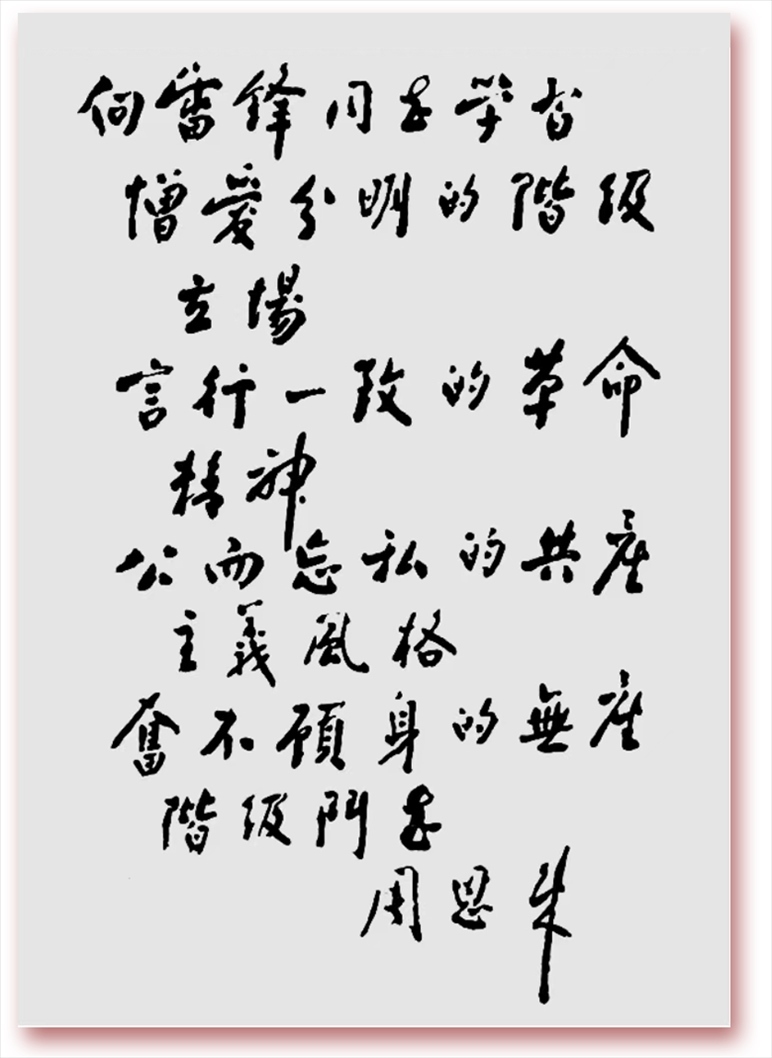 向雷锋同志学習
憎愛分明的階级
立場
言行一致的革命
精神
公而忘私的共産
主義風格
奮不顾身的無産
階级鬥志
周恩来